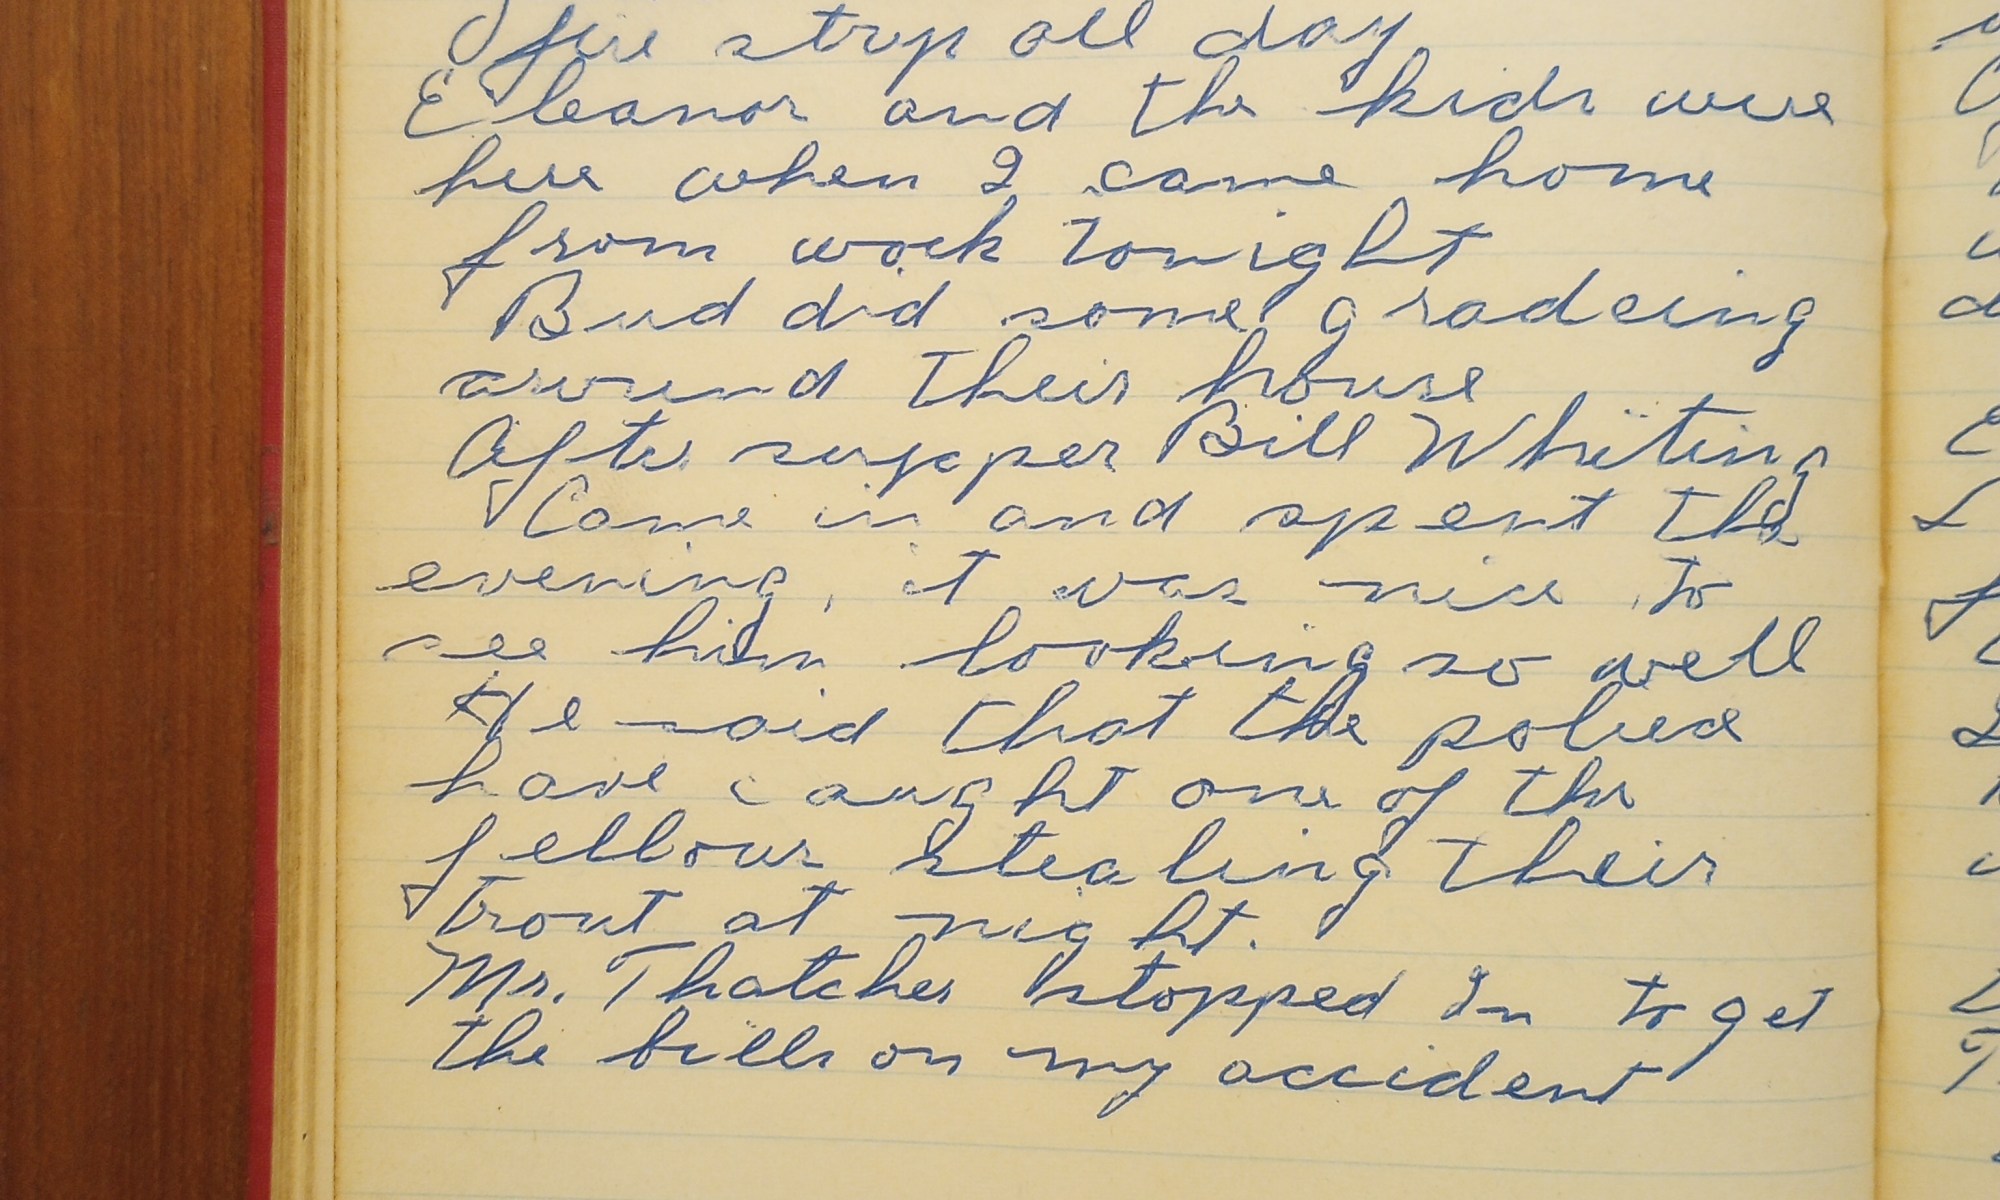 fire strip all day
Eleanor and the kids were
here when I came home
from work tonight
Bud did some gradeing
around their house
After supper Bill Whiting
Came in and spent the
evening, it was nice to
see him looking so well
He said that the police
have caught one of the
fellows stealing their
trout at night.
Mr. Thatcher stopped In to get
the bills on my accident